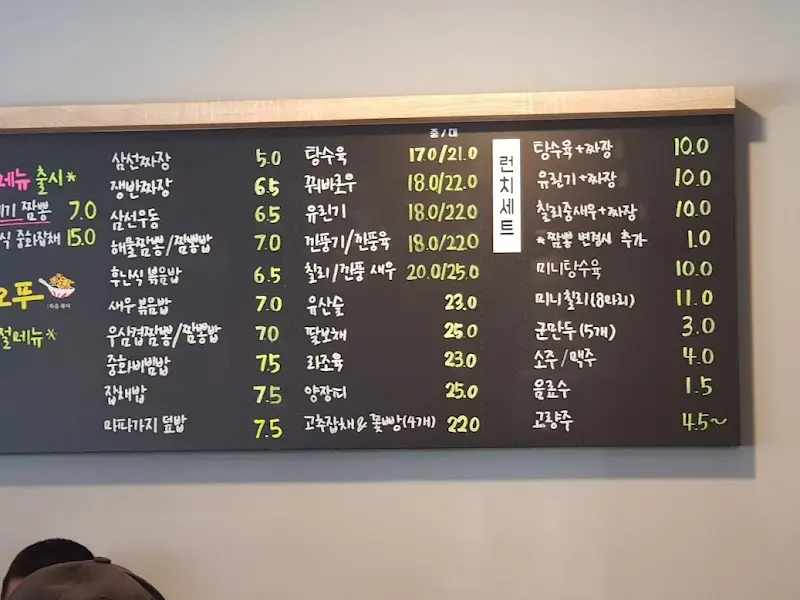 메뉴 출시*
짬뽕 7.0
식 중화잡채 15.0
푸
절메뉴*
삼선짜장 5.0
쟁반짜장 6.5
삼선우동 6.5
해물짬뽕/짬뽕밥 7.0
후난식 볶음밥 6.5
새우볶음밥 7.0
우삼겹짬뽕/짬뽕밥 7.0
중화비빔밥 7.5
잡채밥 7.5
마파가지 덮밥 7.5
중/대
탕수육 17.0/21.0
꿔바로우 18.0/22.0
유린기 18.0/22.0
깐풍기/깐풍육 18.0/22.0
칠리/깐풍 새우 20.0/25.0
유산슬 23.0
팔보채 25.0
라조육 23.0
양장피 25.0
고추잡채&꽃빵(4개) 22.0
런치세트
탕수육+짜장 10.0
유린기+짜장 10.0
칠리중새우+짜장 10.0
*짬뽕 변경시 추가 1.0
미니탕수육 10.0
미니칠리(8마리) 11.0
군만두(5개) 3.0
소주/맥주 4.0
음료수 1.5
고량주 4.5~